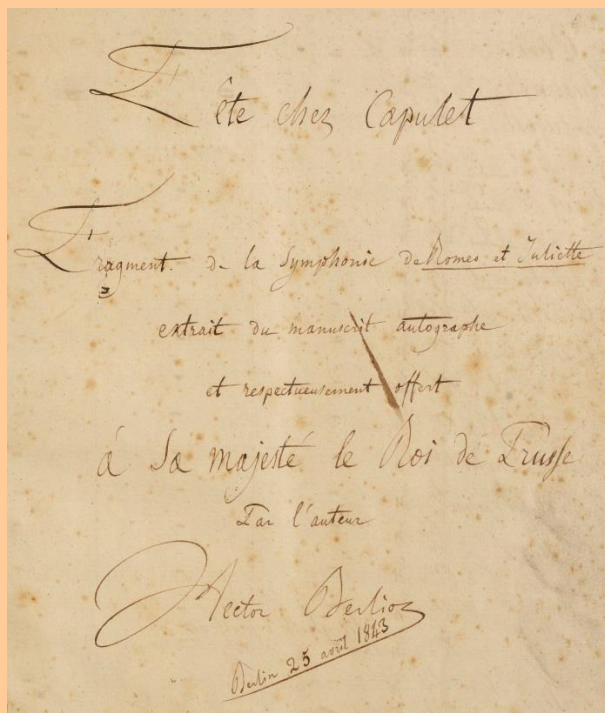 Fête chez Capulet
Fragment. de la Symphonie de Romeo et Juliette
extrait du manuscrit autographe
et respectueusement offert
à Sa majesté le Roi de Prusse
Par l'auteur
Hector Berlioz
Berlin 25 avril 1843